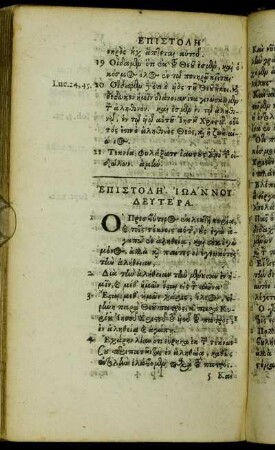 ΕΠΙΣΤΟΛΗ
πονηρὸς οὐχ ἅπτεται αὐτοῦ.
19 Οἴδαμεν ὅτι ἐκ τοῦ Θεοῦ ἐσμεν, καὶ ὁ
κόσμος ὅλος ἐν τῷ πονηρῷ κεῖται.
Luc. 24, 45. 20 Οἴδαμεν ὅτι ὁ υἱὸς τοῦ Θεοῦ ἥκει, καὶ
δέδωκεν ἡμῖν διάνοιαν ἵνα γινώσκωμεν
τὸν ἀληθινόν. καὶ ἐσμεν ἐν τῷ ἀληθι-
νῷ, ἐν τῷ υἱῷ αὐτοῦ Ἰησοῦ Χριστῷ. οὗ-
τός ἐστιν ὁ ἀληθινὸς Θεὸς, καὶ ἡ ζωὴ αἰώ-
νιος.
21 Τεκνία, φυλάξατε ἑαυτοὺς ἀπὸ τῶν εἰ-
δώλων. ἀμήν.
ΕΠΙΣΤΟΛΗ ΙΩΑΝΝΟΥ
ΔΕΥΤΕΡΑ.
Ο Πρεσβύτερος ἐκλεκτῇ κυρίᾳ,
καὶ τοῖς τέκνοις αὐτῆς, οὓς ἐγὼ ἀ-
γαπῶ ἐν ἀληθείᾳ, καὶ οὐκ ἐγὼ
μόνος, ἀλλὰ καὶ πάντες οἱ ἐγνωκότες
τὴν ἀλήθειαν.
2 Διὰ τὴν ἀλήθειαν τὴν μένουσαν ἐν
ἡμῖν, καὶ μεθ' ἡμῶν ἔσται εἰς τὸν αἰῶνα.
3 Ἔσται μεθ' ἡμῶν χάρις, ἔλεος, εἰ-
ρήνη παρὰ Θεοῦ πατρὸς, καὶ παρὰ
Κυρίου Ἰησοῦ Χριστοῦ τοῦ υἱοῦ τοῦ πατρὸς,
ἐν ἀληθείᾳ καὶ ἀγάπῃ.
4 Ἐχάρην λίαν ὅτι εὕρηκα ἐκ τῶν τέκνων
σου περιπατοῦντας ἐν ἀληθείᾳ, καθὼς
ἐντολὴν ἐλάβομεν παρὰ τοῦ πατρός.
5 Καὶ